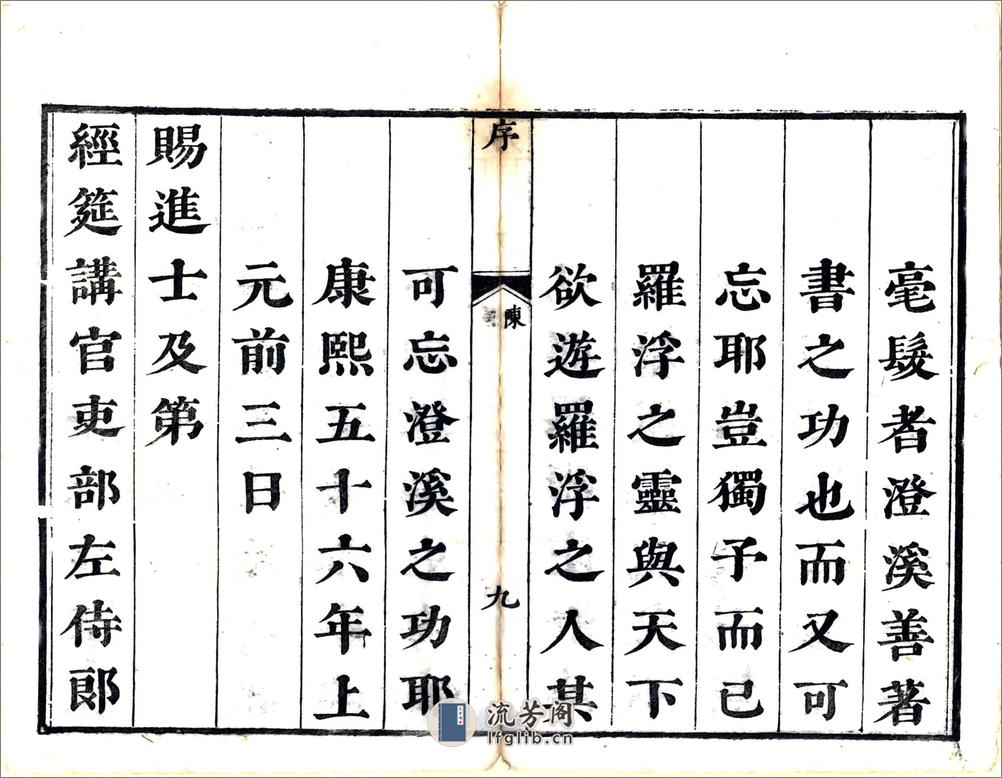 毫髮者澄溪善著
書之功也而又可
忘耶豈獨予而已
羅浮之靈與天下
欲遊羅浮之人其
序
陳
九
可忘澄溪之功耶
康熙五十六年上
元前三日
賜進士及第
經筵講官吏部左侍郎
流芳阁
lfglib.cn